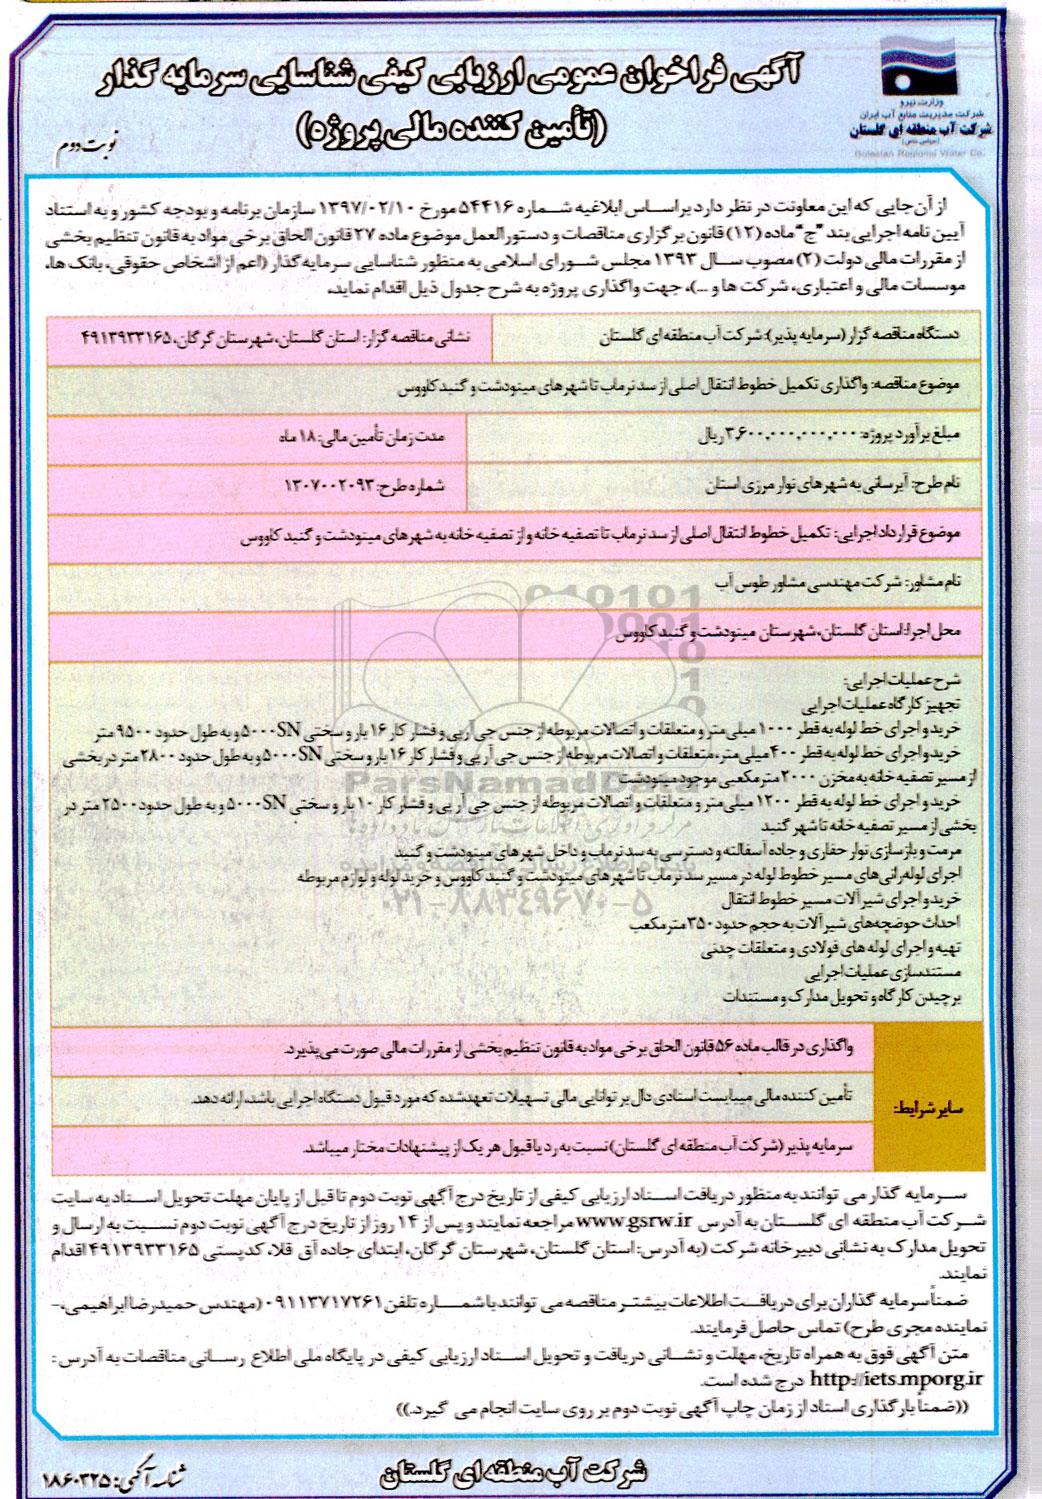 آگهی فراخوان عمومی ارزیابی کیفی شناسایی سرمایه گذار
(تأمین کننده مالی پروژه)
نوبت دوم
وزارت نیرو
شرکت مدیریت منابع آب ایران
شرکت آب منطقه ای گلستان
(سهامی خاص)
Golestan Regional Water Co.
از آن‌جایی که این معاونت در نظر دارد براساس ابلاغیه شماره ۵۴۴۱۶ مورخ ۱۳۹۷/۰۲/۱۰ سازمان برنامه و بودجه کشور و به استناد
آیین نامه اجرایی بند "ج" ماده (۱۲) قانون برگزاری مناقصات و دستورالعمل موضوع ماده ۲۷ قانون الحاق برخی مواد به قانون تنظیم بخشی
از مقررات مالی دولت (۲) مصوب سال ۱۳۹۳ مجلس شورای اسلامی به منظور شناسایی سرمایه گذار (اعم از اشخاص حقوقی، بانک ها،
موسسات مالی و اعتباری، شرکت ها و ...)، جهت واگذاری پروژه به شرح جدول ذیل اقدام نماید.
دستگاه مناقصه گزار (سرمایه پذیر): شرکت آب منطقه ای گلستان
نشانی مناقصه گزار: استان گلستان، شهرستان گرگان، ۴۹۱۳۹۳۳۱۶۵
موضوع مناقصه: واگذاری تکمیل خطوط انتقال اصلی از سد نرماب تا شهرهای مینودشت و گنبد کاووس
مبلغ برآورد پروژه: ۳,۶۰۰,۰۰۰,۰۰۰,۰۰۰ ریال
مدت زمان تأمین مالی: ۱۸ ماه
نام طرح: آبرسانی به شهرهای نوار مرزی استان
شماره طرح: ۱۳۰۷۰۰۲۰۹۳
موضوع قرارداد اجرایی: تکمیل خطوط انتقال اصلی از سد نرماب تا تصفیه خانه و از تصفیه خانه به شهرهای مینودشت و گنبد کاووس
نام مشاور: شرکت مهندسی مشاور طوس آب
محل اجرا: استان گلستان، شهرستان مینودشت و گنبد کاووس
شرح عملیات اجرایی:
تجهیز کارگاه عملیات اجرایی
خرید و اجرای خط لوله به قطر ۱۰۰۰ میلی متر و متعلقات و اتصالات مربوطه از جنس جی آر پی و فشار کار ۱۶ بار و سختی ۵۰۰۰SN و به طول حدود ۹۵۰۰ متر
خرید و اجرای خط لوله به قطر ۴۰۰ میلی متر، متعلقات و اتصالات مربوطه از جنس جی آر پی و فشار کار ۱۶ بار و سختی ۵۰۰۰SN و به طول حدود ۲۸۰۰ متر در بخشی
از مسیر تصفیه خانه به مخزن ۲۰۰۰ متر مکعبی موجود مینودشت
خرید و اجرای خط لوله به قطر ۱۲۰۰ میلی متر و متعلقات و اتصالات مربوطه از جنس جی آر پی و فشار کار ۱۰ بار و سختی ۵۰۰۰SN و به طول حدود ۲۵۰۰ متر در
بخشی از مسیر تصفیه خانه تا شهر گنبد
مرمت و بازسازی نوار حفاری و جاده آسفالته و دسترسی به سد نرماب و داخل شهرهای مینودشت و گنبد
اجرای لوله‌رانی‌های مسیر خطوط لوله در مسیر سد نرماب تا شهرهای مینودشت و گنبد کاووس و خرید لوله و لوازم مربوطه
خرید و اجرای شیرآلات مسیر خطوط انتقال
احداث حوضچه‌های شیرآلات به حجم حدود ۳۵۰ متر مکعب
تهیه و اجرای لوله های فولادی و متعلقات چدنی
مستندسازی عملیات اجرایی
برچیدن کارگاه و تحویل مدارک و مستندات
ParsNamadData
۰۲۱-۸۸۳۴۹۶۷۰-۵
سایر شرایط:
واگذاری در قالب ماده ۵۶ قانون الحاق برخی مواد به قانون تنظیم بخشی از مقررات مالی صورت می‌پذیرد.
تأمین کننده مالی میبایست اسنادی دال بر توانایی مالی تسهیلات تعهد شده که مورد قبول دستگاه اجرایی باشد، ارائه دهد.
سرمایه پذیر (شرکت آب منطقه ای گلستان) نسبت به رد یا قبول هر یک از پیشنهادات مختار میباشد.
سرمایه گذار می توانند به منظور دریافت اسناد ارزیابی کیفی از تاریخ درج آگهی نوبت دوم تا قبل از پایان مهلت تحویل اسناد به سایت
شرکت آب منطقه ای گلستان به آدرس www.gsrw.ir مراجعه نمایند و پس از ۱۴ روز از تاریخ درج آگهی نوبت دوم نسبت به ارسال و
تحویل مدارک به نشانی دبیرخانه شرکت (به آدرس: استان گلستان، شهرستان گرگان، ابتدای جاده آق قلا، کدپستی ۴۹۱۳۹۳۳۱۶۵ اقدام
نمایند.
ضمناً سرمایه گذاران برای دریافت اطلاعات بیشتر مناقصه می توانند با شماره تلفن ۰۹۱۱۳۷۱۷۲۶۱ (مهندس حمیدرضا ابراهیمی، -
نماینده مجری طرح) تماس حاصل فرمایند.
متن آگهی فوق به همراه تاریخ، مهلت و نشانی دریافت و تحویل اسناد ارزیابی کیفی در پایگاه ملی اطلاع رسانی مناقصات به آدرس :
http://iets.mporg.ir درج شده است.
((ضمناً بارگذاری اسناد از زمان چاپ آگهی نوبت دوم بر روی سایت انجام می گیرد.))
شرکت آب منطقه ای گلستان
شناسه آگهی: ۱۸۶۰۳۲۵